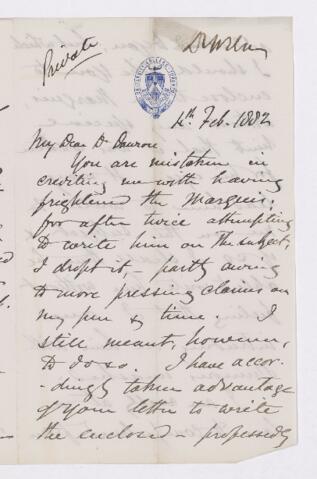 Private
4th Feb. 1882
My Dear Dr Dawson
You are mistaken in
crediting me with having
frightened the Marquis;
for after twice attempting
to write him on the subject,
I dropt it, – partly owing
to more pressing claims on
my pen & time. I
still meant, however,
to do so. I have accor-
-dingly taken advantage
of your letter to write
the enclosed – professedly